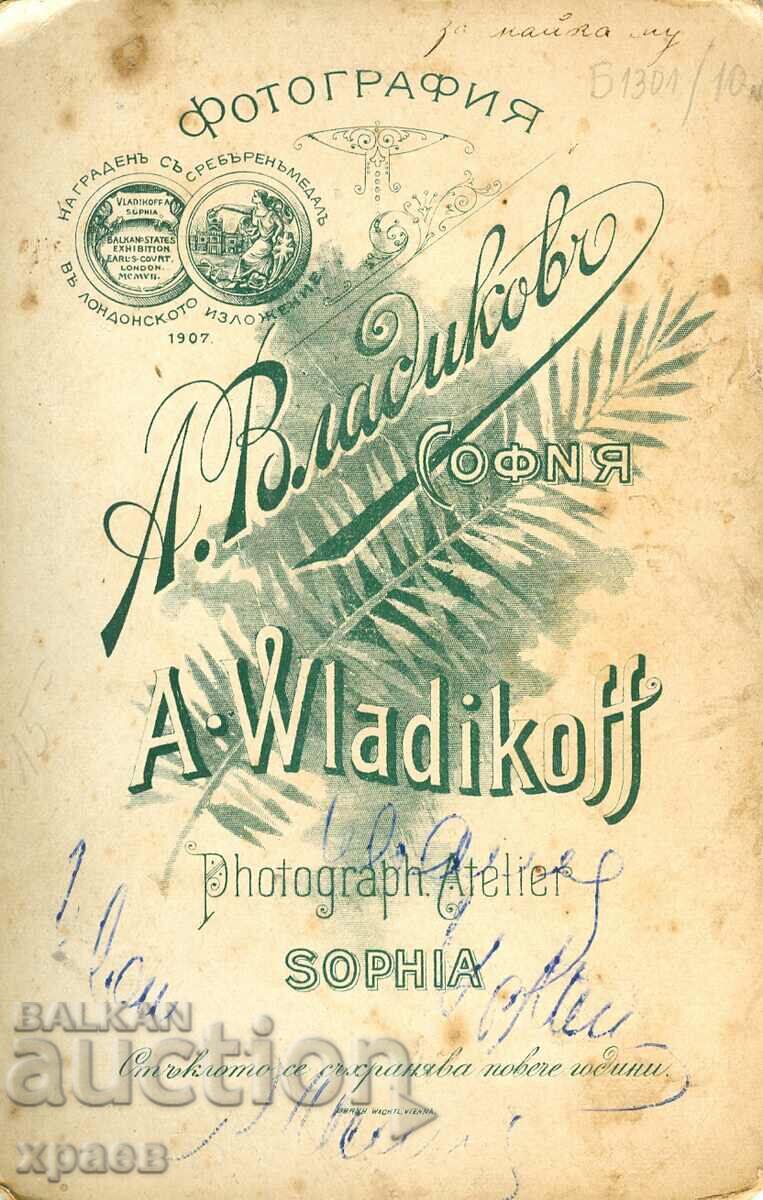 за майка му
Б1301/10
ФОТОГРАФИЯ
НАГРАДЕНЪ СЪ СРЕБЪРЕНЪ МЕДАЛЪ
ВЪ ЛОНДОНСКОТО ИЗЛОЖЕНИЕ
1907.
VLADIKOFF A
SOPHIA
BALKAN-STATES
EXHIBITION
EARL'S-COURT,
LONDON.
MCMVII.
А. Владиковъ
СОФИЯ
A. Wladikoff
15
Photograph. Atelier
SOPHIA
BALKAN
auction
Стъклото се съхранява повече години.
BERNH. WACHTL, VIENNA.
храев